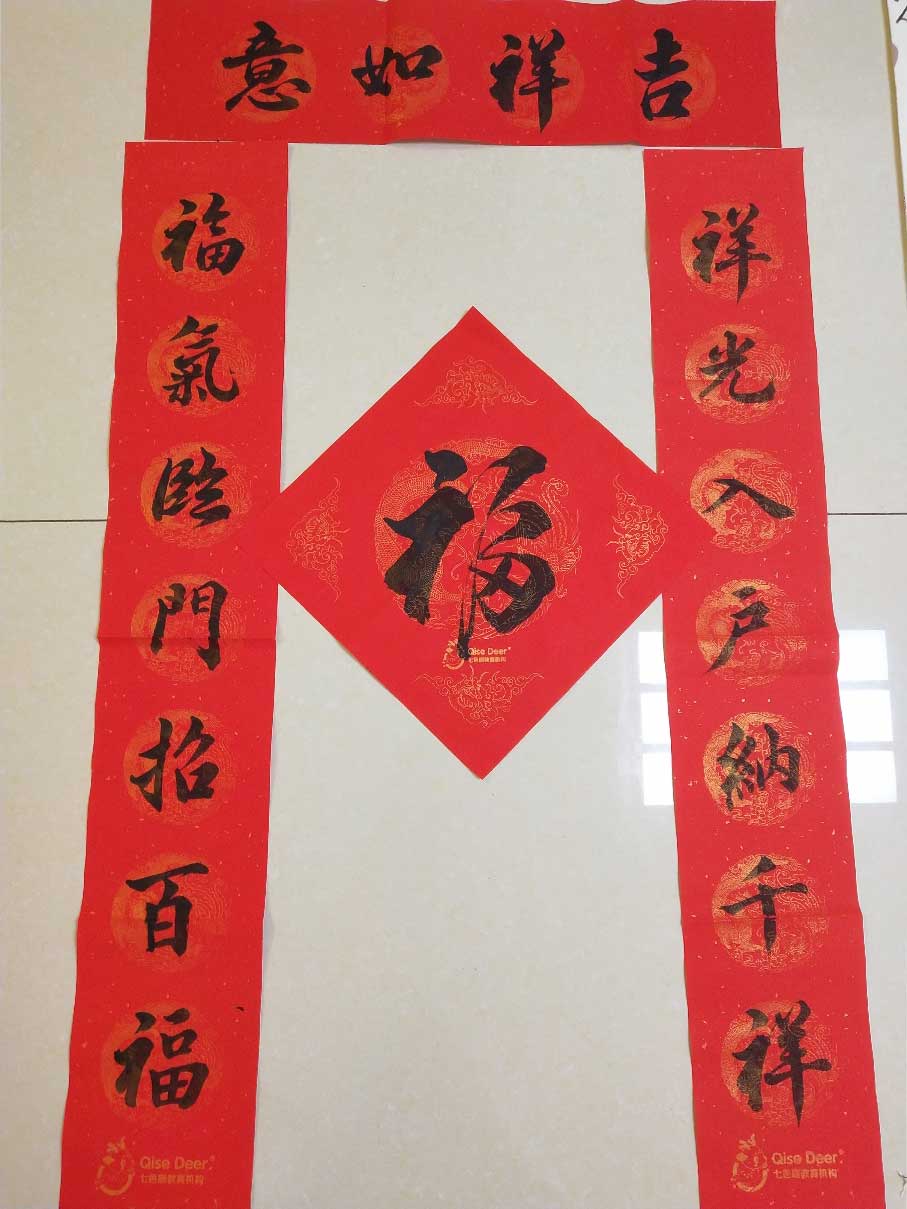 吉祥如意
祥光入户納千祥
福氣臨門招百福
福
Qise Deer
七色鹿教育机构
Qise Deer
七色鹿教育机构
Qise Deer
七色鹿教育机构